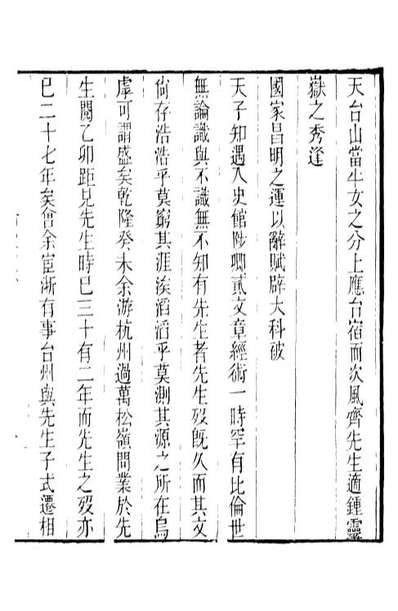 天台山當牛女之分上應台宿而次風齊先生適鍾靈
嶽之秀逢
國家昌明之運以辭賦辟大科被
天子知遇入史館陟卿貳文章經術一時罕有比倫世
無論識與不識無不知有先生者先生歿旣久而其文
尙存浩浩乎莫窮其涯涘滔滔乎莫測其源之所在烏
虖可謂盛矣乾隆癸未余游杭州過萬松嶺問業於先
生閱乙卯距見先生時已三十有二年而先生之歿亦
已二十七年矣會余宦浙有事台州與先生子式遷相